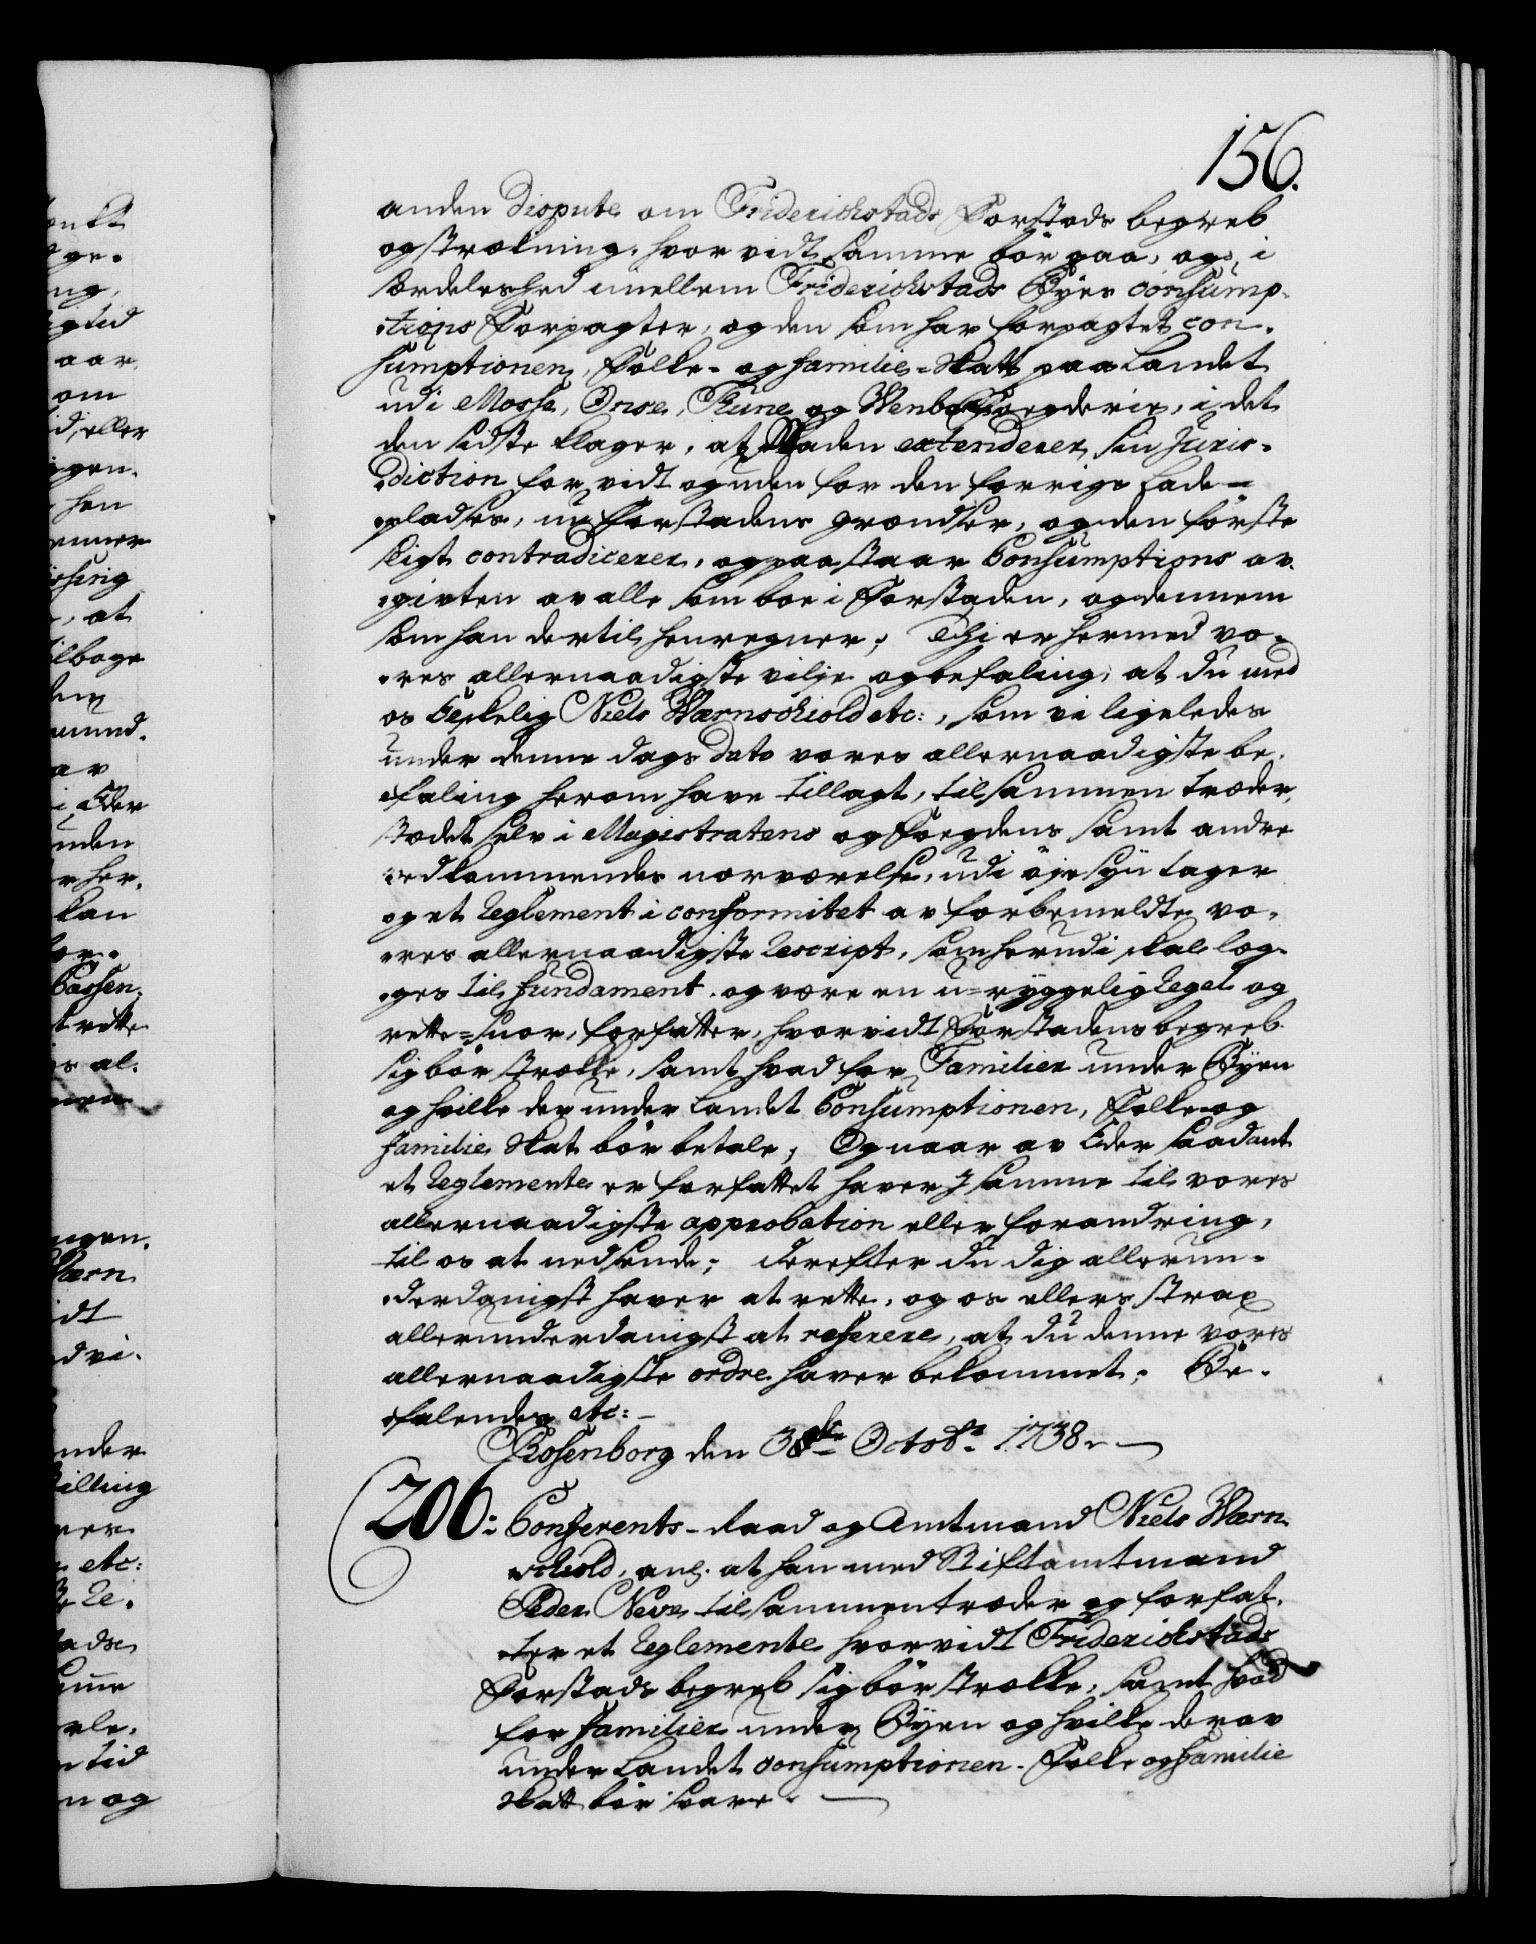 156.
anden Dispute om Friderichstads Forstads begreb
og strækning, hvor vidt samme bör gaa, og i
særdeleshed imellem Friderichstads Byes consump-
-tions Forpagter, og den som har forpagtet con-
sumptionen, Folke- og familie-Skatt paa Landet
udi Mosse, Onsöe, Tune og Wenbo Foegderie, i det
den sidste klager, at Staden extenderer sin Juris-
-diction for vidt og uden for den forrige Lade-
-pladses, nu Forstadens grændser, og den förste
sligt contradicerer, og paastaar Consumptions av-
-giften av alle som boe i Forstaden, og dennem
som han dertil henregner; Thi er hermed vo-
-res allernaadigste vilje og befaling, at du med
os Elskelig Niels Wærnschiold etc:, som vi ligeledes
under denne dags dato vores allernaadigste be-
-faling herom have tillagt, tilsammen træder,
stædet selv i Magistratens og Foegdens samt andre
vedkommendes nærværelse, udi öjesyn tager
og et Reglement i conformitet av forbemeldte vo-
-res allernaadigste Rescript, som herudi skal læg-
-ges til fundament og være en u-ryggelig Regel og
rette-snor, forfatter, hvorvidt Forstadens begreb
sig bör strække, samt hvad for Familier under Byen
og hvilke der under Landet Consumptionen, Folke og
familie Skat bör betale; Og naar av Eder saadant
et Reglemente er forfattet haver I samme til vores
allernaadigste approbation eller forandring,
til os at nedsende; derefter du dig allerun-
-derdanigst haver at rette, og os ellers strax
allerunderdanigst at referere, at du denne vores
allernaadigste ordre haver bekommet. Be-
-falendes etc:
Rosenborg den 3die Octobr. 1738.
206: Conferents-Raad og Amtmand Niels Wærn-
schiold, anl. at han med Stiftamtmand
Peder Neve tilsammentræder og forfat-
-ter et Reglemente hvorvidt Friderichstads
Forstads begreb sig bör strække, samt hvad
for familier under Byen og hvilke derav
under Landet consumptionen. Folke og Familie
Skatt bör svare.